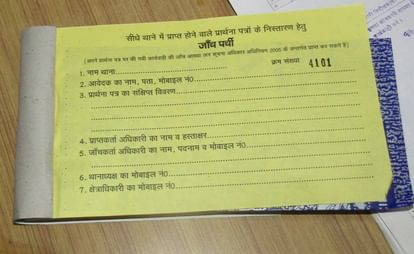 सीधे थाने में प्राप्त होने वाले प्रार्थना पत्रों के निस्तारण हेतु
जाँच पर्ची
(अपने प्रार्थना पत्र पर की गयी कार्यवाही की जाँच आख्या जन सूचना अधिकार अधिनियम 2005 के अन्तर्गत प्राप्त कर सकते हैं)
क्रम संख्या 4101
1. नाम थाना
2. आवेदक का नाम, पता, मोबाइल नं0
3. प्रार्थना पत्र का संक्षिप्त विवरण
4. प्राप्तकर्ता अधिकारी का नाम व हस्ताक्षर
5. जाँचकर्ता अधिकारी का नाम, पदनाम व मोबाइल नं0
6. थानाध्यक्ष का मोबाइल नं0
7. क्षेत्राधिकारी का मोबाइल नं0